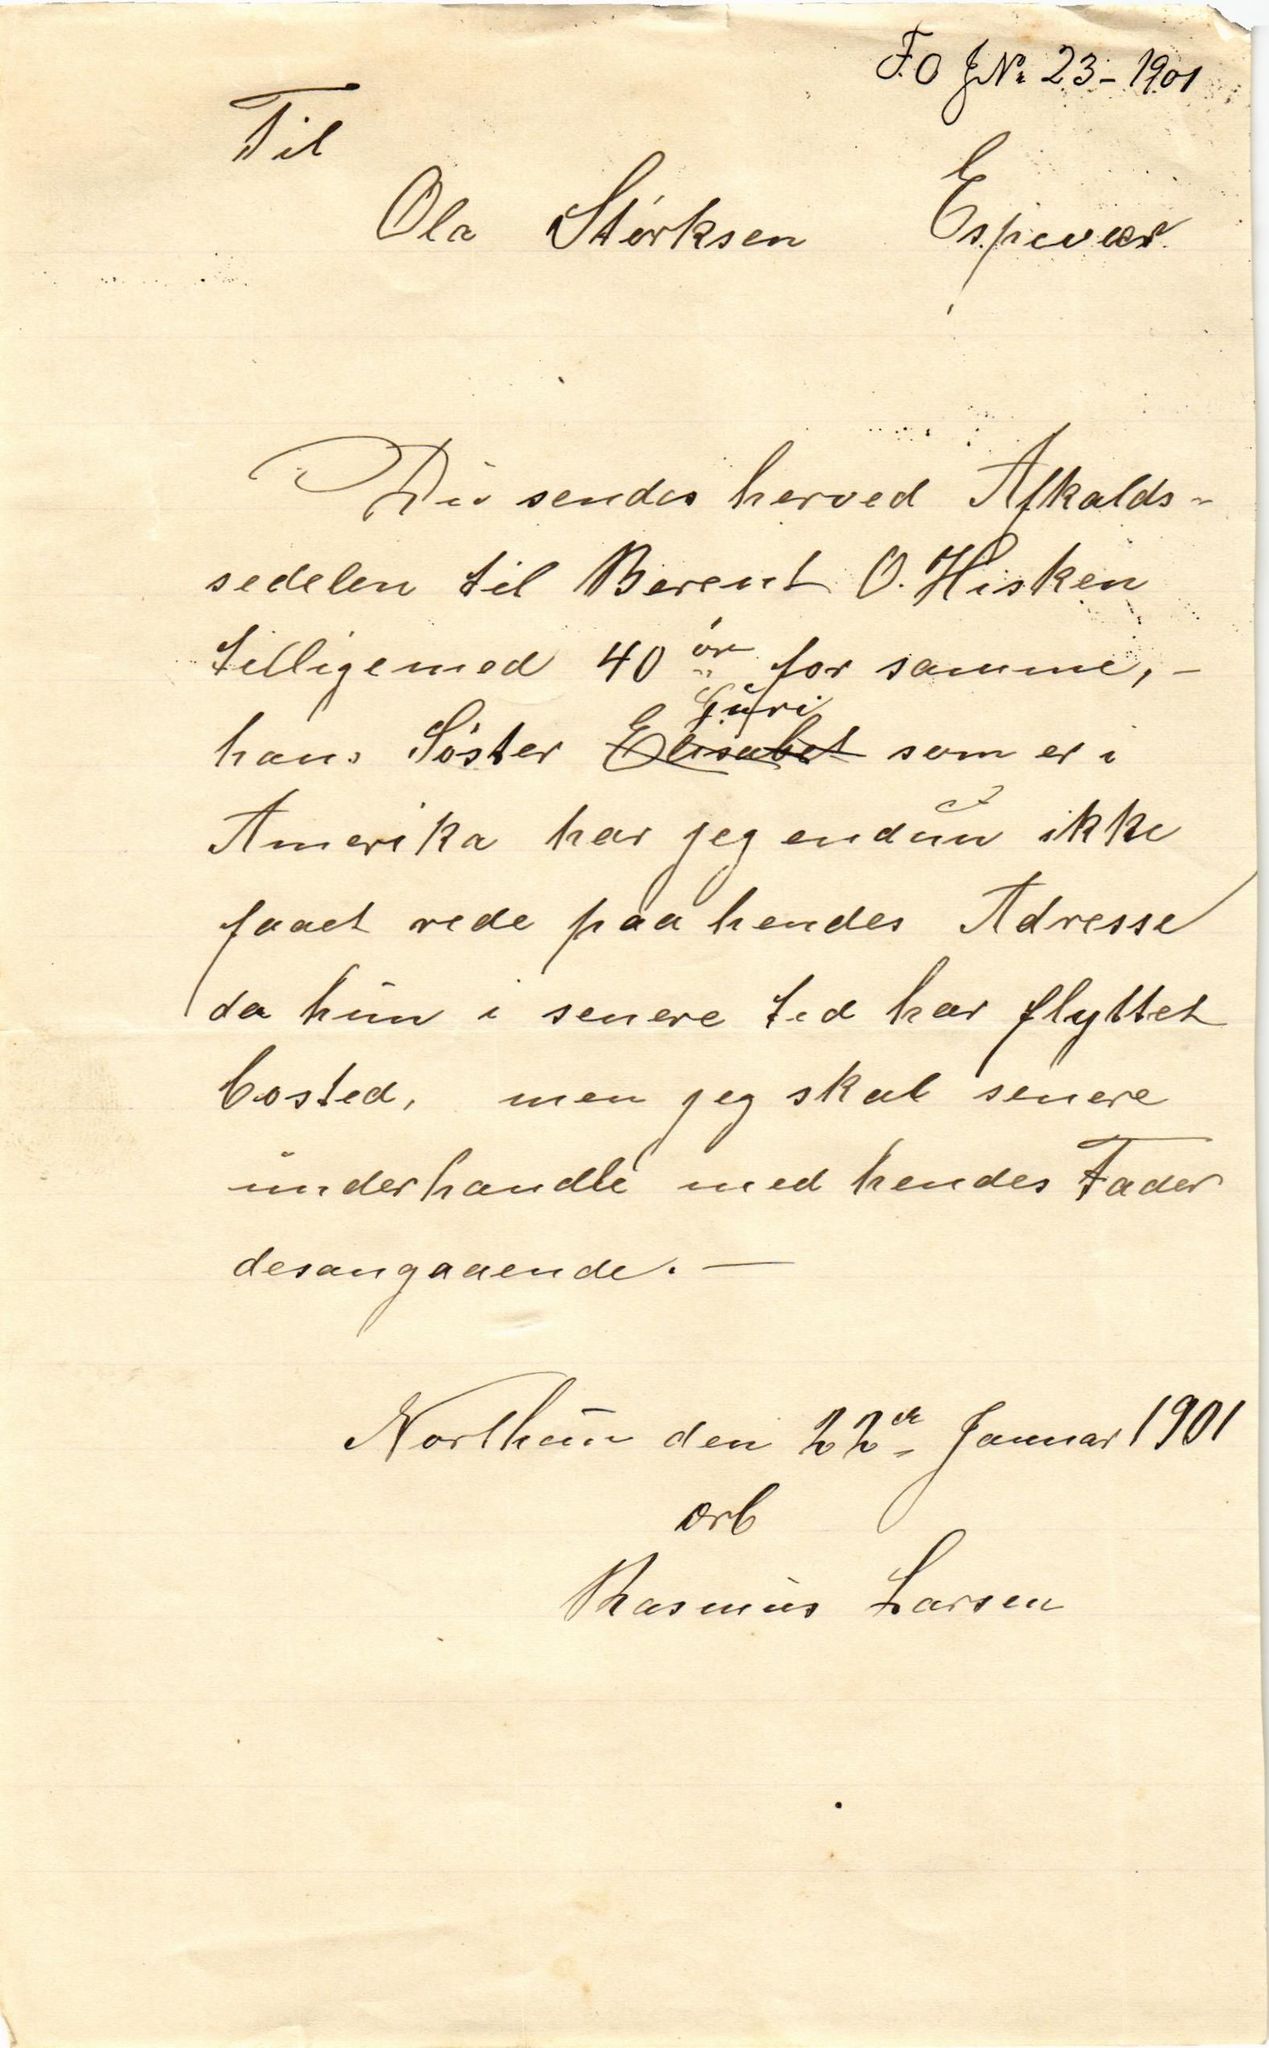 F.O JNr 23-1901
Til
Ola Størksen Espevær
Du sendes herved Afkalds-
sedelen til Berent O. Hisken
tilligemed 40 ør for samme, -
Guri
hans Søster Elisabet som er i
Amerika har jeg endnu ikke
faaet rede paa hendes Adresse
da hun i senere tid har flyttet
bosted, men jeg skal senere
underhandle med hendes Fader
desangaaende. —
den 22de Januar 1901
ærb
Rasmus Larsen